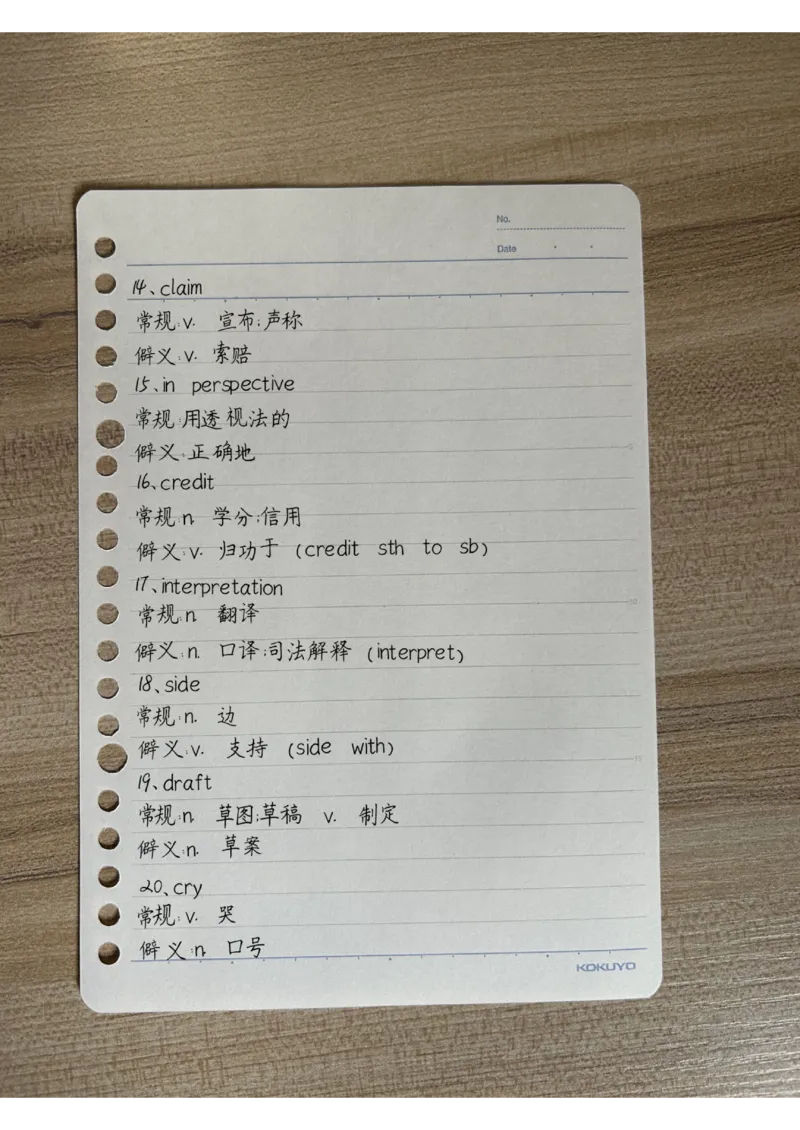 No.
Date
14、claim
常规:v. 宣布;声称
僻义:v. 索赔
15、in perspective
常规:用透视法的
僻义:正确地
16、credit
常规:n. 学分;信用
僻义:v. 归功于 (credit sth to sb)
17、interpretation
常规:n. 翻译
僻义:n. 口译;司法解释 (interpret)
18、side
常规:n. 边
僻义:v. 支持 (side with)
19、draft
常规:n. 草图;草稿 v. 制定
僻义:n. 草案
20、cry
常规:v. 哭
僻义:n. 口号
KOKUYO